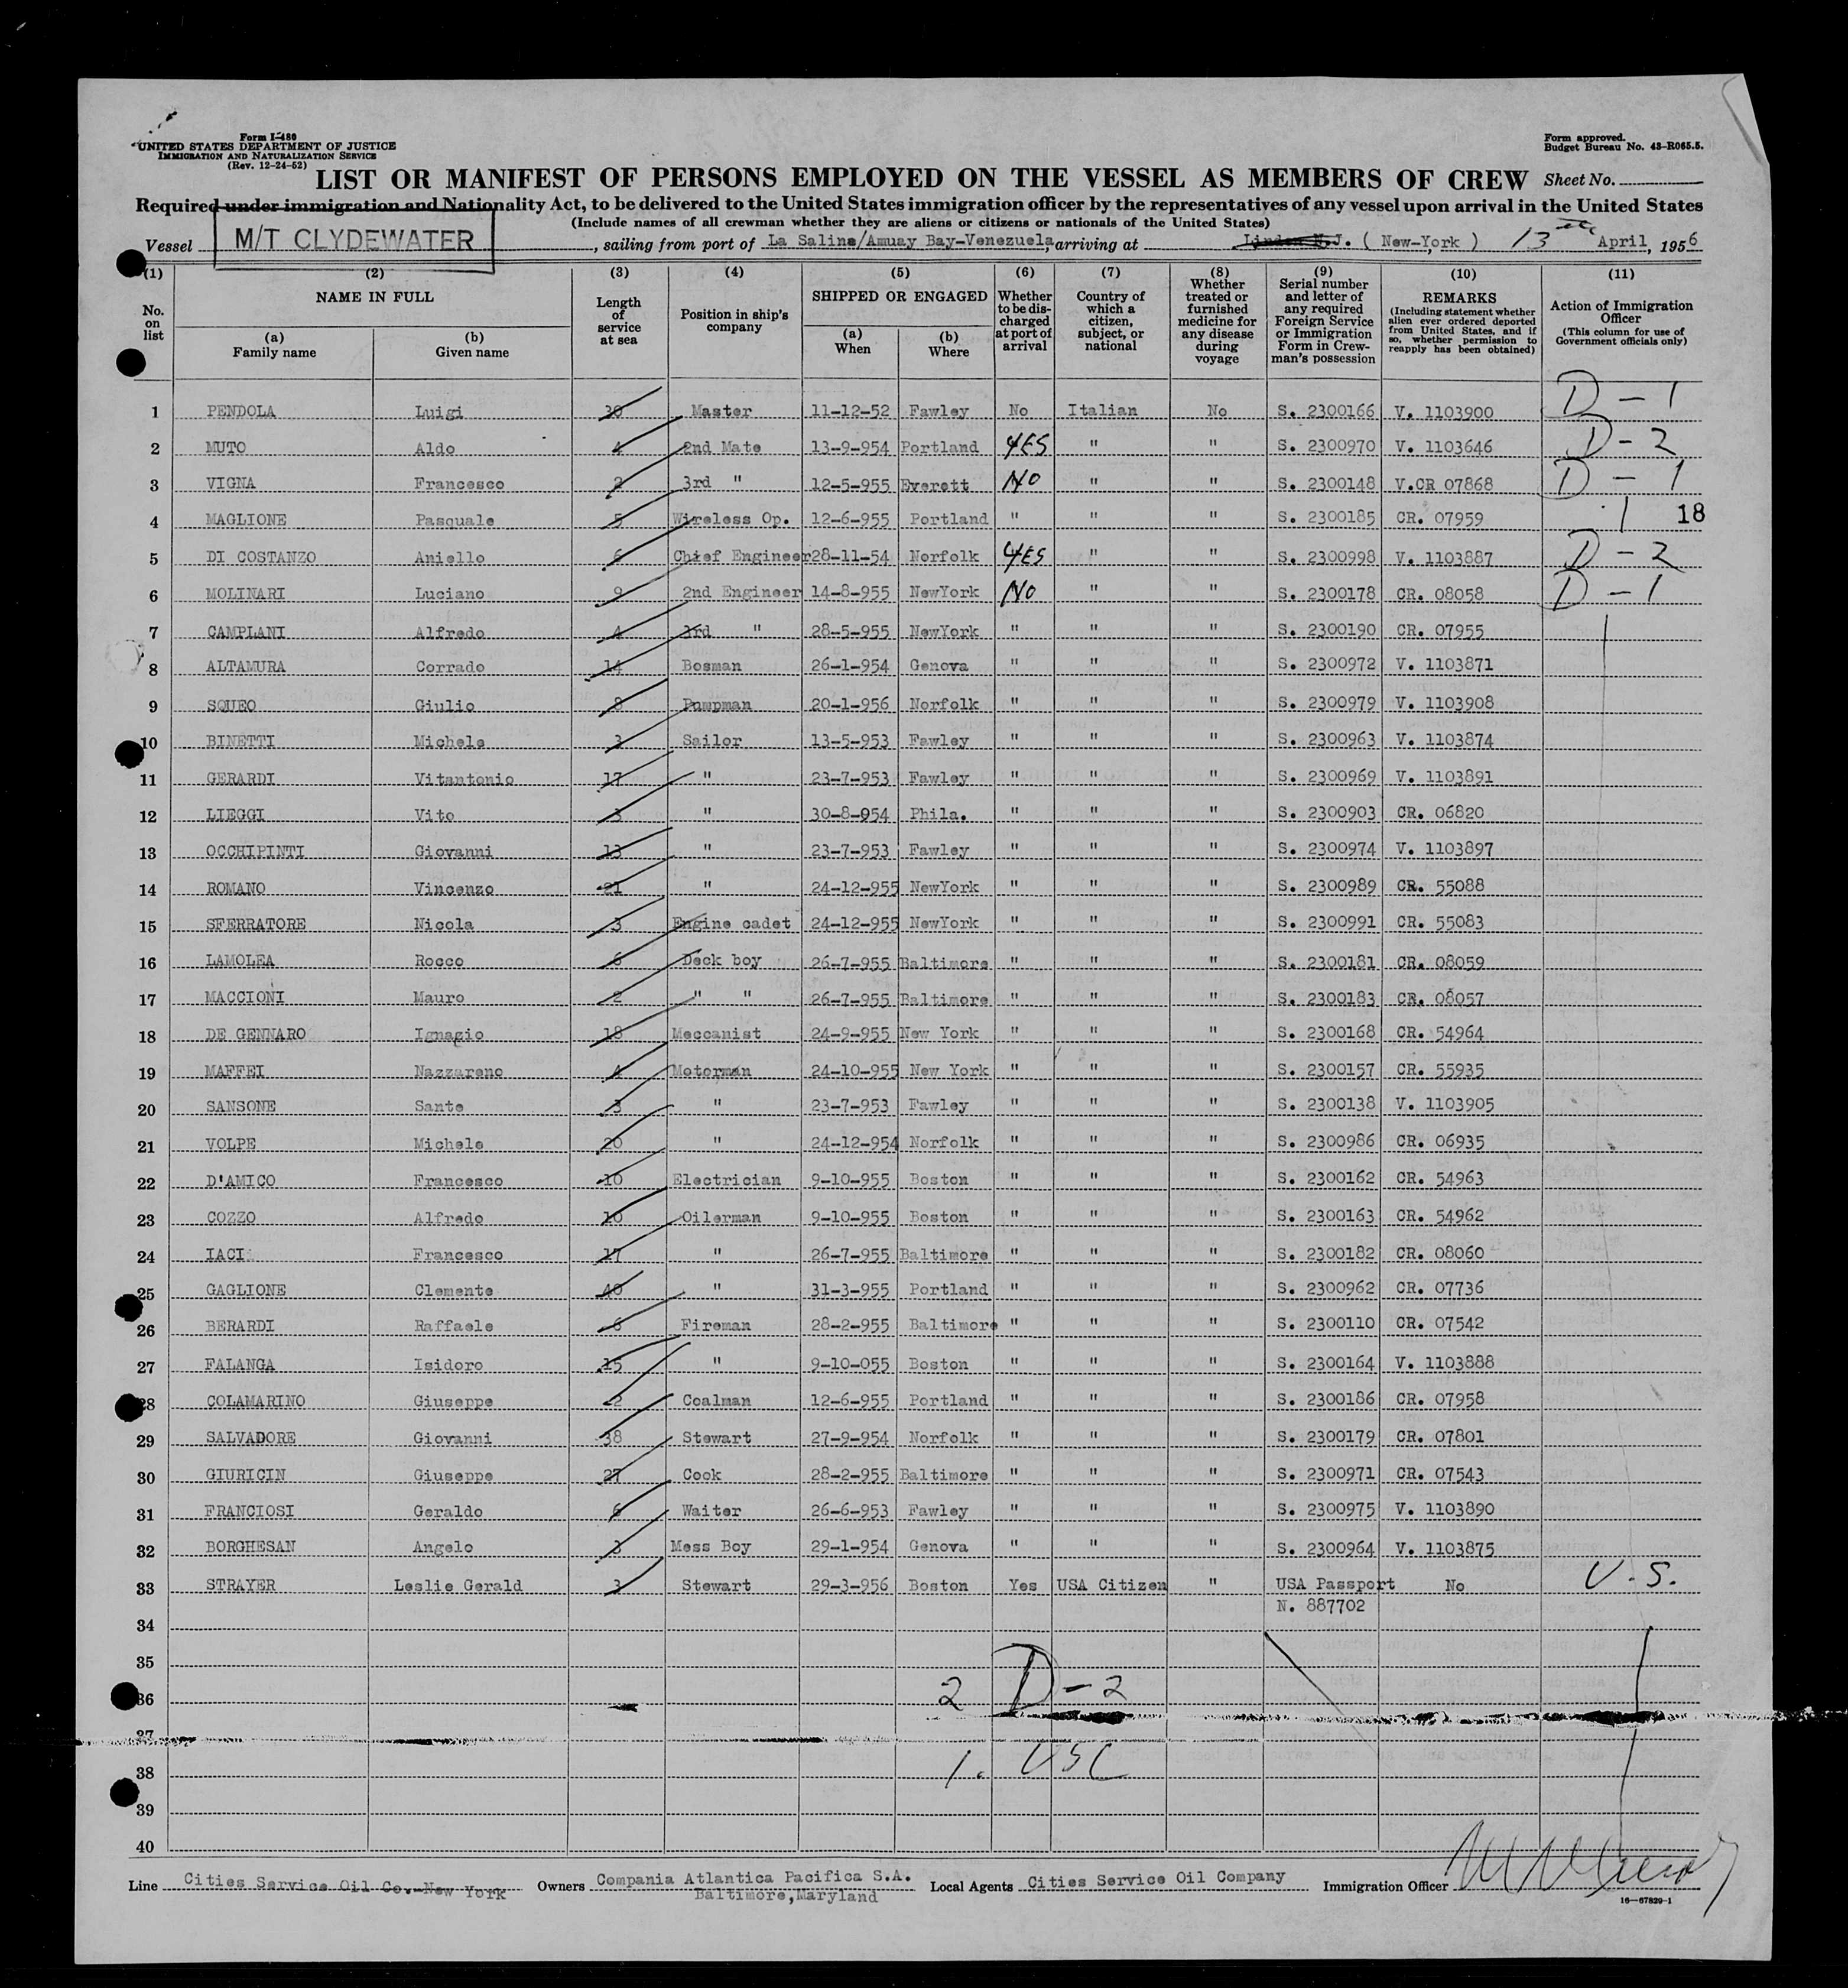 Form I-480
UNITED STATES DEPARTMENT OF JUSTICE
IMMIGRATION AND NATURALIZATION SERVICE
(Rev. 12-24-52)
Form approved.
Budget Bureau No. 43-R065.5.
LIST OR MANIFEST OF PERSONS EMPLOYED ON THE VESSEL AS MEMBERS OF CREW Sheet No.
Required under immigration and Nationality Act, to be delivered to the United States immigration officer by the representatives of any vessel upon arrival in the United States
(Include names of all crewman whether they are aliens or citizens or nationals of the United States)
Vessel M/T CLYDEWATER, sailing from port of La Salina/Amuay Bay-Venezuela, arriving at Linden N.J. ( New-York ) 13th April, 1956
(1) No. on list
(2) NAME IN FULL (a) Family name (b) Given name
(3) Length of service at sea
(4) Position in ship's company
(5) SHIPPED OR ENGAGED (a) When (b) Where
(6) Whether to be discharged at port of arrival
(7) Country of which a citizen, subject, or national
(8) Whether treated or furnished medicine for any disease during voyage
(9) Serial number and letter of any required Foreign Service or Immigration Form in Crewman's possession
(10) REMARKS (Including statement whether alien ever ordered deported from United States, and if so, whether permission to reapply has been obtained)
(11) Action of Immigration Officer (This column for use of Government officials only)
1 PENDOLA Luigi 30 Master 11-12-52 Fawley No Italian No S. 2300166 V. 1103900 D - 1
2 MUTO Aldo 4 2nd Mate 13-9-954 Portland YES " " S. 2300970 V. 1103646 D - 2
3 VIGNA Francesco 2 3rd " 12-5-955 Everett NO " " S. 2300148 V.CR 07868 D - 1
4 MAGLIONE Pasquale 5 Wireless Op. 12-6-955 Portland " " " S. 2300185 CR. 07959 18
5 DI COSTANZO Aniello 6 Chief Engineer 28-11-54 Norfolk YES " " S. 2300998 V. 1103887 D - 2
6 MOLINARI Luciano 9 2nd Engineer 14-8-955 NewYork NO " " S. 2300178 CR. 08058 D - 1
7 CAMPLANI Alfredo 4 3rd " 28-5-955 NewYork " " " S. 2300190 CR. 07955
8 ALTAMURA Corrado 14 Bosman 26-1-954 Genova " " " S. 2300972 V. 1103871
9 SQUEO Giulio 8 Pumpman 20-1-956 Norfolk " " " S. 2300979 V. 1103908
10 BINETTI Michele 3 Sailor 13-5-953 Fawley " " " S. 2300963 V. 1103874
11 GERARDI Vitantonio 17 " 23-7-953 Fawley " " " S. 2300969 V. 1103891
12 LIEGGI Vito 3 " 30-8-954 Phila. " " " S. 2300903 CR. 06820
13 OCCHIPINTI Giovanni 13 " 23-7-953 Fawley " " " S. 2300974 V. 1103897
14 ROMANO Vincenzo 21 " 24-12-955 NewYork " " " S. 2300989 CR. 55088
15 SFERRATORE Nicola 3 Engine cadet 24-12-955 NewYork " " " S. 2300991 CR. 55083
16 LAMOLEA Rocco 6 Deck boy 26-7-955 Baltimore " " " S. 2300181 CR. 08059
17 MACCIONI Mauro 2 " " 26-7-955 Baltimore " " " S. 2300183 CR. 08057
18 DE GENNARO Ignazio 18 Meccanist 24-9-955 New York " " " S. 2300168 CR. 54964
19 MAFFEI Nazzareno 4 Motorman 24-10-955 New York " " " S. 2300157 CR. 55935
20 SANSONE Sante 3 " 23-7-953 Fawley " " " S. 2300138 V. 1103905
21 VOLPE Michele 20 " 24-12-954 Norfolk " " " S. 2300986 CR. 06935
22 D'AMICO Francesco 10 Electrician 9-10-955 Boston " " " S. 2300162 CR. 54963
23 COZZO Alfredo 10 Oilerman 9-10-955 Boston " " " S. 2300163 CR. 54962
24 IACI Francesco 17 " 26-7-955 Baltimore " " " S. 2300182 CR. 08060
25 GAGLIONE Clemente 40 " 31-3-955 Portland " " " S. 2300962 CR. 07736
26 BERARDI Raffaele 6 Fireman 28-2-955 Baltimore " " " S. 2300110 CR. 07542
27 FALANGA Isidoro 15 " 9-10-055 Boston " " " S. 2300164 V. 1103888
28 COLAMARINO Giuseppe 2 Coalman 12-6-955 Portland " " " S. 2300186 CR. 07958
29 SALVADORE Giovanni 38 Stewart 27-9-954 Norfolk " " " S. 2300179 CR. 07801
30 GIURICIN Giuseppe 27 Cook 28-2-955 Baltimore " " " S. 2300971 CR. 07543
31 FRANCIOSI Geraldo 6 Waiter 26-6-953 Fawley " " " S. 2300975 V. 1103890
32 BORGHESAN Angelo 3 Mess Boy 29-1-954 Genova " " " S. 2300964 V. 1103875
33 STRAYER Leslie Gerald 3 Stewart 29-3-956 Boston Yes USA Citizen " USA Passport No U.S.
N. 887702
34
35
36 2 D - 2
37
38 1. USC
39
40
Line Cities Service Oil Co.-New York Owners Compania Atlantica Pacifica S.A. Baltimore, Maryland Local Agents Cities Service Oil Company Immigration Officer
16-67829-1